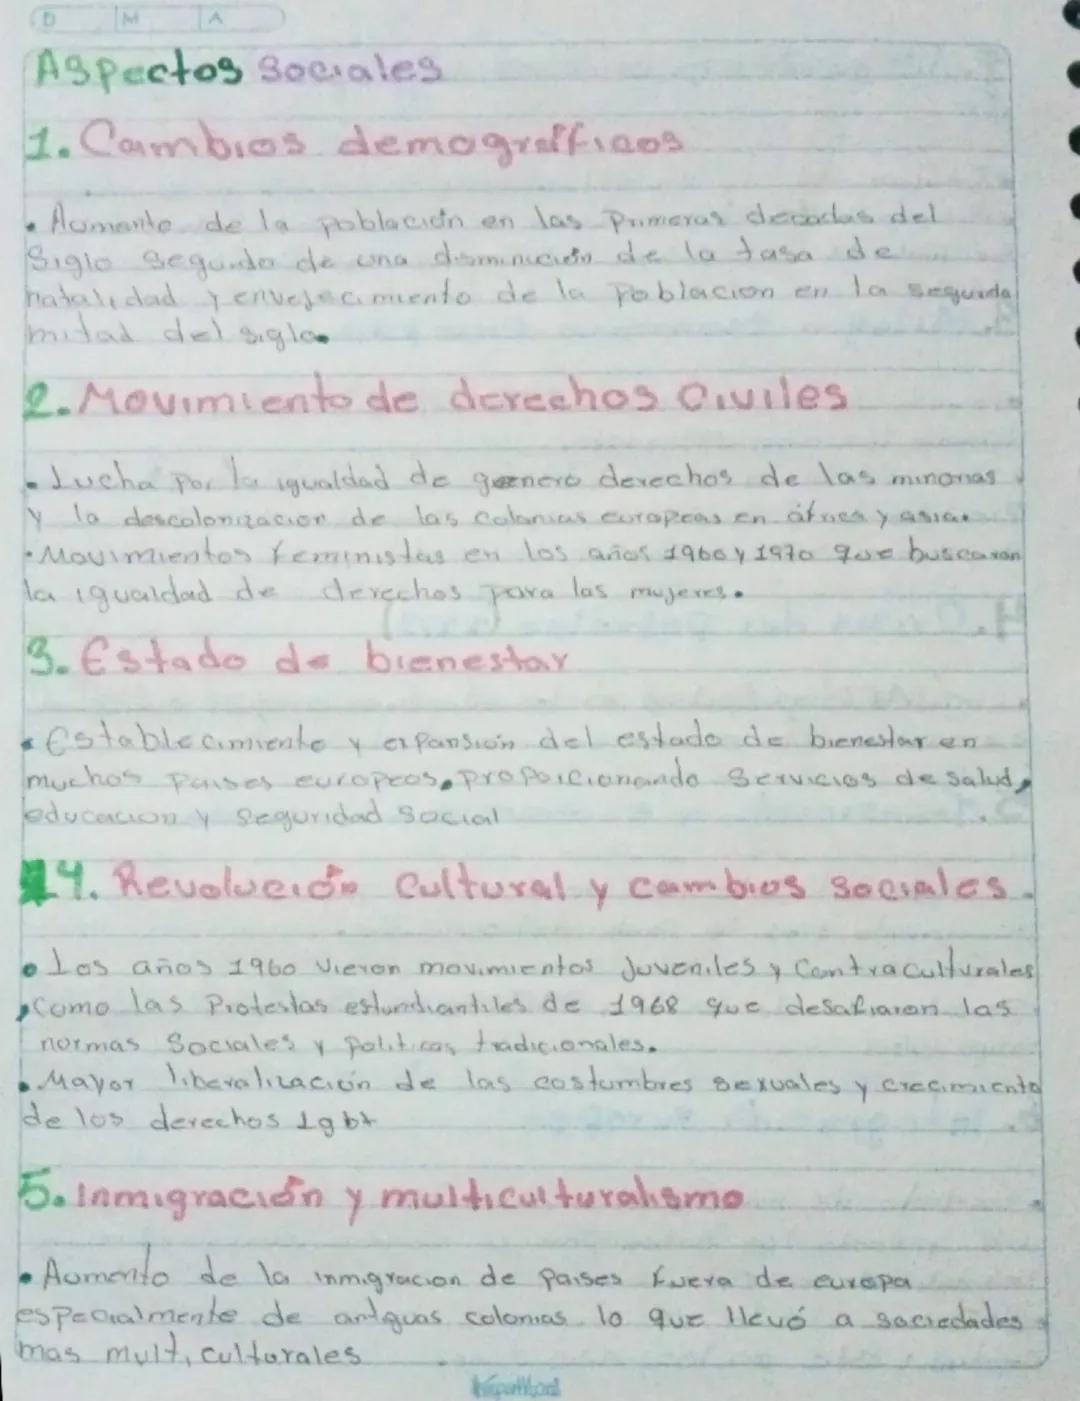 D M A
Aspectos Sociales
1. Cambios demográfficos
• Aumento de la población en las Primeras decadas del
Siglo Seguido de una disminución de la tasa de
natalidad y envejecimiento de la Poblacion en la segunda
mitad del siglo.
2. Movimiento de derechos Civiles
• Lucha por la igualdad de genero derechos de las minorias
y la descolonizacion de las colonias europeas en áfrica y asia.
• Movimientos feministas en los años 1960 y 1970 que buscaron
la igualdad de derechos para las mujeres.
3. Estado de bienestar
• Establecimiento y expansión del estado de bienestar en
muchos paises europeos, proporcionando Servicios de salud,
educacion y Seguridad Social
4. Revolución Cultural y cambios sociales.
• Los años 1960 Vieron movimientos Juveniles y Contraculturales
, Como las Protestas estundiantiles de 1968 que desafiaron las
normas Sociales y Politicas tradicionales.
• Mayor liberalización de las costumbres sexuales y crecimiento
de los derechos lgbt
5. Inmigración y multiculturalismo
• Aumento de la inmigracion de paises fuera de europa
especialmente de antguas colonias lo que llevó a sociedades
mas multiculturales